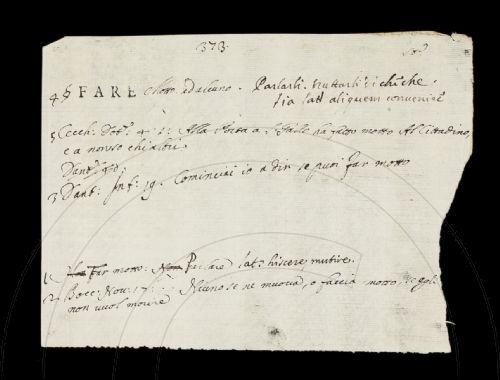 373.
4 § FARE motto ad alcuno. Parlarli. trattarli di chi che
sia lat: aliquem convenire
5 Cecch: Dot: 4. 1: Alla Porta a S. Paolo ha fatto motto Al Cittadino,
e a non so chi altri.
3 Dant: Inf: 19. Cominciai io a dir se puoi far motto
1 Far motto. Parlare lat: hiscere mutire.
2 Bocc: Nov: Niuno se ne muova, o faccia motto, se egli
non vuol morire